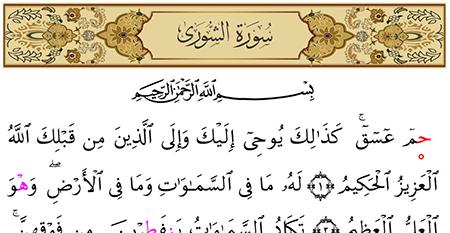 سُورَةُ الشُّورَىٰ
بِسْمِ اللَّهِ الرَّحْمَٰنِ الرَّحِيمِ
حمٓ عٓسٓقٓ ۚ كَذَٰلِكَ يُوحِىٓ إِلَيْكَ وَإِلَى ٱلَّذِينَ مِن قَبْلِكَ ٱللَّهُ
ٱلْعَزِيزُ ٱلْحَكِيمُ ﴿١﴾ لَهُۥ مَا فِى ٱلسَّمَٰوَٰتِ وَمَا فِى ٱلْأَرْضِ ۖ وَهْوَ
ٱلْعَلِىُّ ٱلْعَظِيمُ ﴿٢﴾ تَكَادُ ٱلسَّمَٰوَٰتُ يَنفَطِرْنَ مِن فَوْقِهِنَّ ۚ